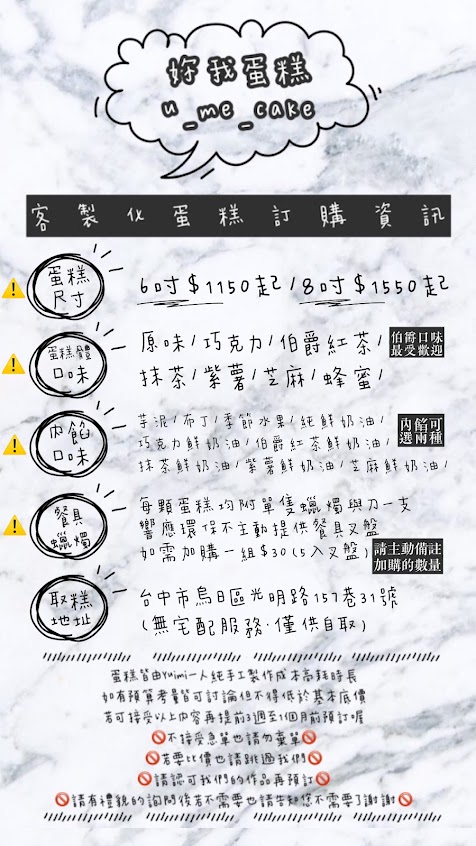 妳我蛋糕
u_me_cake
客製化蛋糕訂購資訊
蛋糕
尺寸
6吋$1150起/8吋$1550起
蛋糕體
口味
原味/巧克力/伯爵紅茶/
抹茶/紫薯/芝麻/蜂蜜/
伯爵口味
最受歡迎
內餡
口味
芋泥/布丁/季節水果/純鮮奶油/
巧克力鮮奶油/伯爵紅茶鮮奶油/
抹茶鮮奶油/紫薯鮮奶油/芝麻鮮奶油/
內餡可
選兩種
餐具
蠟燭
每顆蛋糕均附單隻蠟燭與刀一支
響應環保不主動提供餐具叉盤
如需加購一組$30(5入叉盤)
請主動備註
加購的數量
取糕
地址
台中市烏日區光明路157巷31號
(無宅配服務·僅供自取)
蛋糕皆由Yuimi一人純手工製作成本高耗時長
如有預算考量皆可討論但不得低於基本底價
若可接受以上內容再提前3週至1個月前預訂喔
🚫不接受急單也請勿棄單🚫
🚫若要比價也請跳過我們🚫
🚫請認可我們的作品再預訂🚫
🚫請有禮貌的詢問後若不需要也請告知您不需要了謝謝🚫